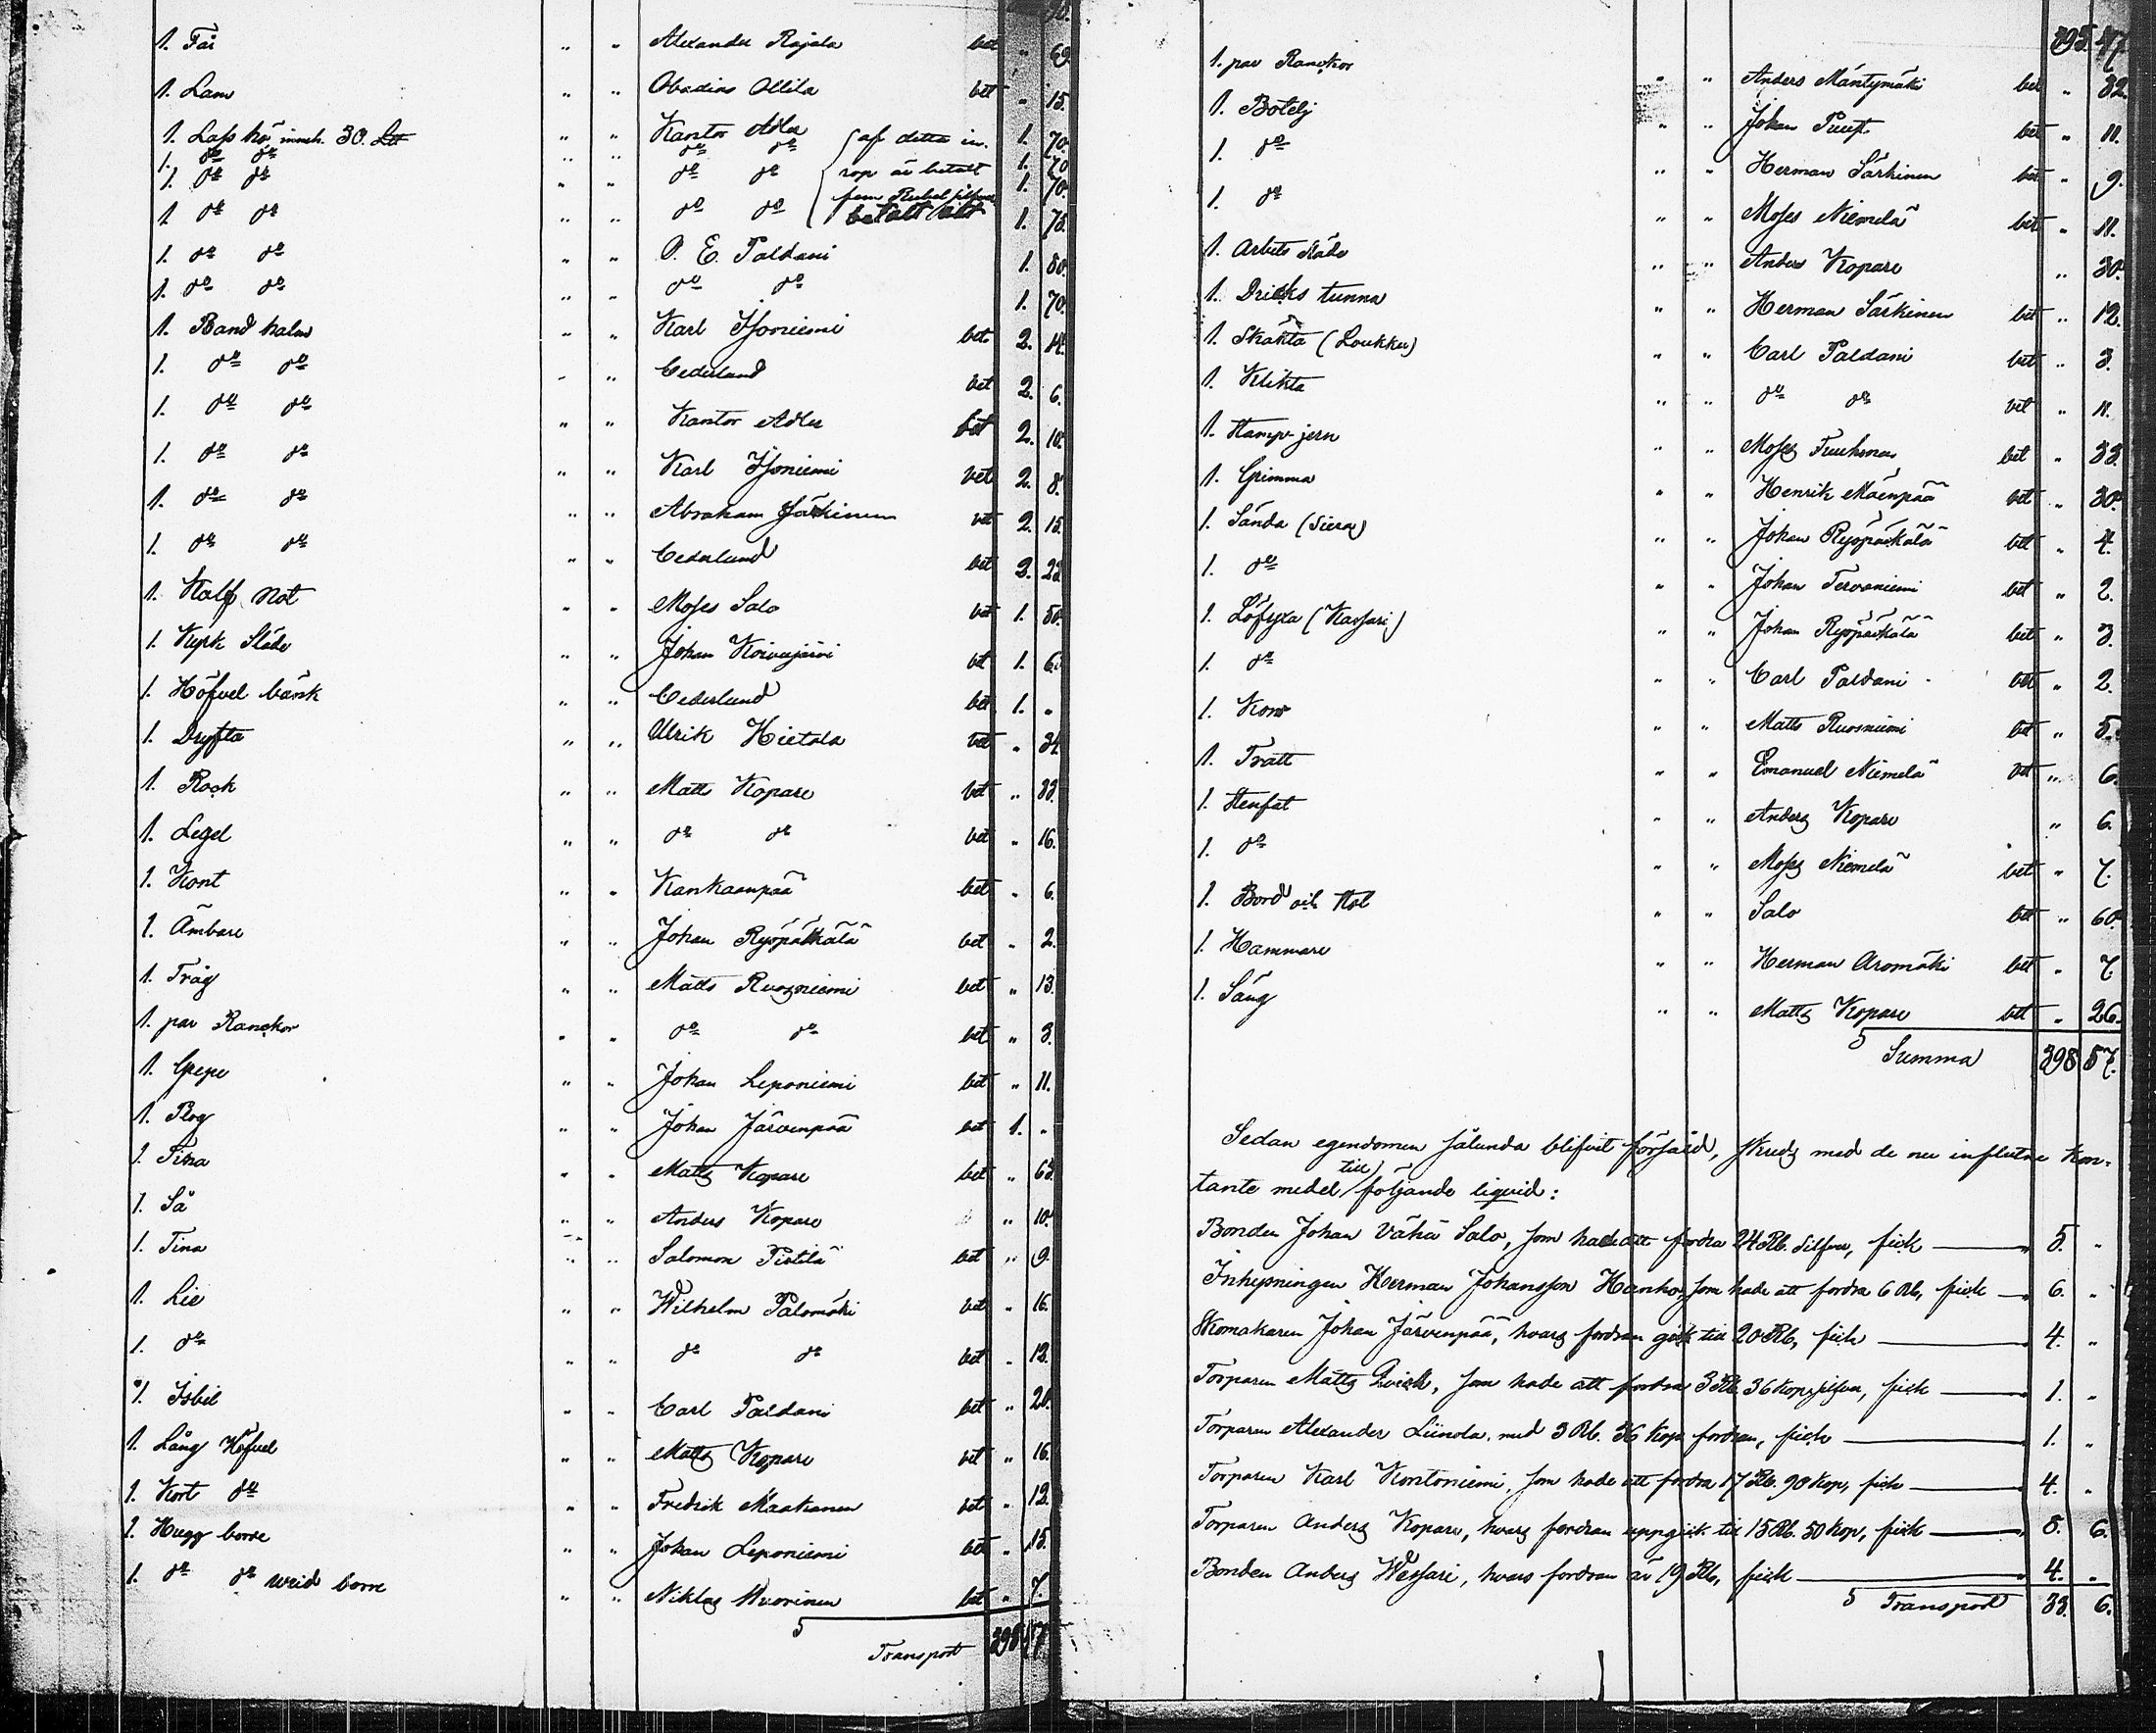 1. Får " " Alexander Rajala bet " 69.
1. Lam " " Obadias Ollila bet " 15.
1. Lass hö inneh. 30. " " Kantor Adler af detta in. 1. 70.
1. do do " " do do 1. 70
1. do do " " do do rop är betalt 1. 70.
fem Rubel silfver
1 do do " " do do betalt 1. 75.
1. do do " " P. E. Paldani 1. 80.
1. do do " " do do 1. 70.
1. Band halm " " Karl Isoniemi bet 2. 14.
1. do do " " Cederlund bet 2. 6.
1. do do " " Kantor Adler bet 2. 10.
1. do do " " Karl Isoniemi bet 2. 8.
1. do do " " Abraham Särkinen bet 2. 15.
1. do do " " Cederlund bet 2. 22
1. Half Not " " Moses Salo bet 1. 50.
1. Kyrk Släde " " Johan Koivujärvi bet 1. 6.
1. Höfvel bänk " " Cederlund bet 1. "
1. Dryfta " " Ulrik Hietala bet " 34.
1. Rock " " Matts Kopare bet " 33.
1. Legel " " do do bet " 16.
1. Kont " " Kankaanpää bet " 6.
1. Ämbare " " Johan Ryöpäskälä bet " 2.
1. Tråg " " Matts Ruosniemi bet " 13.
1. par Ranckor " " do do bet " 3.
1. Grepe " " Johan Leponiemi bet " 11.
1. Plog " " Johan Järvenpää bet 1. "
1. Tina " " Matts Kopare bet " 63.
1. Så " " Anders Kopare " 10.
1. Tina " " Salomon Pistilä bet " 9.
1. Lie " " Wilhelm Palomäki bet " 16.
1. do " " do do bet " 12.
1. Isbil " " Carl Paldani bet " 20.
1. Lång Höfvel " " Matts Kopare bet " 16.
1. Kort do " " Fredrik Maakanen bet " 12.
1. Hugg borre " " Johan Leponiemi bet " 15.
1. do do wrid borre " " Niklas Wuorinen bet " 7.
Transport 395 47.
395. 47.
1. par Ranckor " " Anders Mäntymäki bet " 32.
1. Botelj " " Johan Puus bet " 11.
1. do " " Herman Särkinen bet " 9.
1. do " " Moses Niemelä bet " 11.
1. Arbets släde " " Anders Kopare " 30.
1. Dricks tunna " " Herman Särkinen bet " 12.
1. Skäkta (Loukku) " " Carl Paldani bet " 3.
1. Klikta " " do do bet " 11.
1. Stamp jern " " Moses bet " 33.
1. Grimma " " Henrik Mäenpää bet " 30.
1. Sända (Siera) " " Johan Ryöpäskälä bet " 4.
1. do " " Johan Tervaniemi bet " 2.
1. Löfyxa (Kassari) " " Johan Ryöpäskälä bet " 3.
1. do " " Carl Paldani bet " 2.
1. Korv " " Matts Ruosniemi bet " 5.
1. Tratt " " Emanuel Niemelä bet " 6.
1. Stenfat " " Anders Kopare " 6.
1. do " " Moses Niemelä bet " 7.
1. Bord och Stol " " Salo bet " 60.
1. Hammare " " Herman Aromäki bet " 7.
1. Säng " " Matts Kopare bet " 26.
Summa 398 57.
Sedan egendomen sålunda blifvit försåld, skreds med de nu influtne kon-
tante medel till följande liqvid:
Bonden Johan Vähä Salo, som hade att fordra 24 Rb. Silfver, fick — 5. "
Inhysningen Herman Johansson Hanka, som hade att fordra 6 Rb, fick — 6. "
Skomakaren Johan Järvenpää, hvars fordran gick till 20 Rb, fick — 4. "
Torparen Matts Qvick, som hade att fordra 3 Rb 36 kop. silfver, fick — 1. "
Torparen Alexander Liinola, med 3 Rb. 36 Kop fordran, fick — 1. "
Torparen Karl Kontoniemi, som hade att fordra 17 Rb. 90 Kop, fick — 4. "
Torparen Anders Kopare, hvars fordran uppgick till 15 Rb. 50 Kop, fick — 8. 6.
Bonden Anders Wessari, hvars fordran är 19 Rb, fick — 4. "
Transport 33. 6.